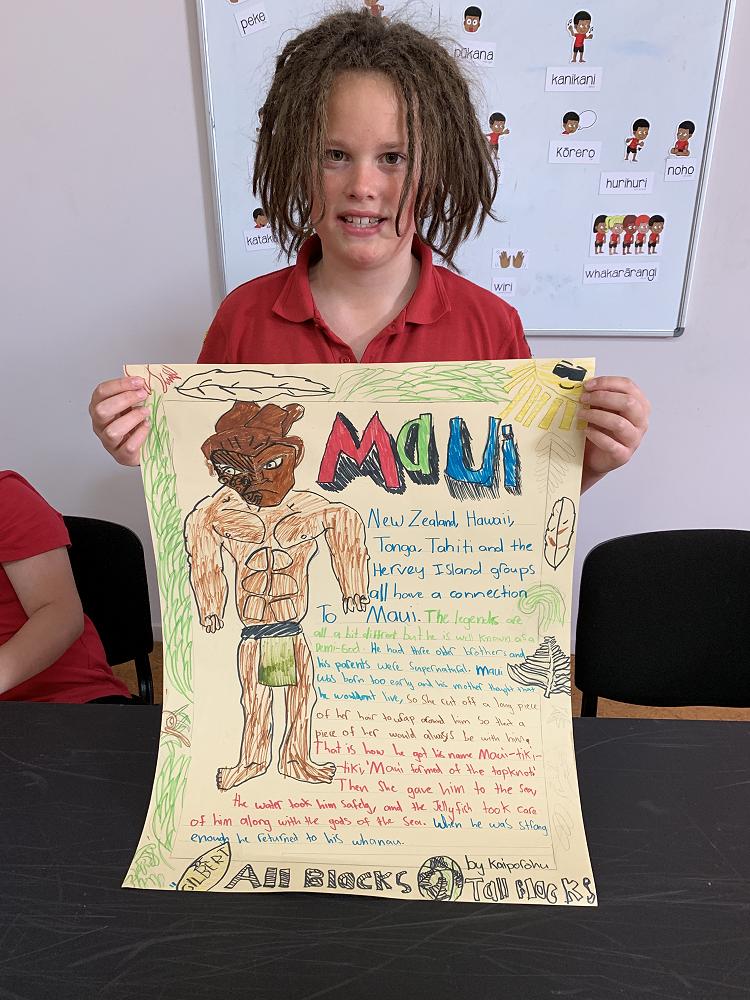 peke
pūkana
kanikani
Kōrero
hurihuri
noho
whakarārangi
wiri
Maui
New Zealand, Hawaii,
Tonga, Tahiti and the
Hervey Island groups
all have a connection
To Maui. The legends are
all a bit different but he is well known as a
Demi-God. He had three older brothers and
his parents were Supernatural. Maui
was born too early and his mother thought that
he wouldn't live, So she cut off a long piece
of her hair to wrap around him so that a
piece of her would always be with him.
That is how he got his name Maui-tiki-
tiki, 'Maui formed of the topknot'
Then She gave him to the sea,
the water took him safely, and the Jellyfish took care
of him along with the gods of the Sea. When he was strong
enough he returned to his whanau.
GILBERT
All Blocks
by Kaiporohu
Tall Blocks